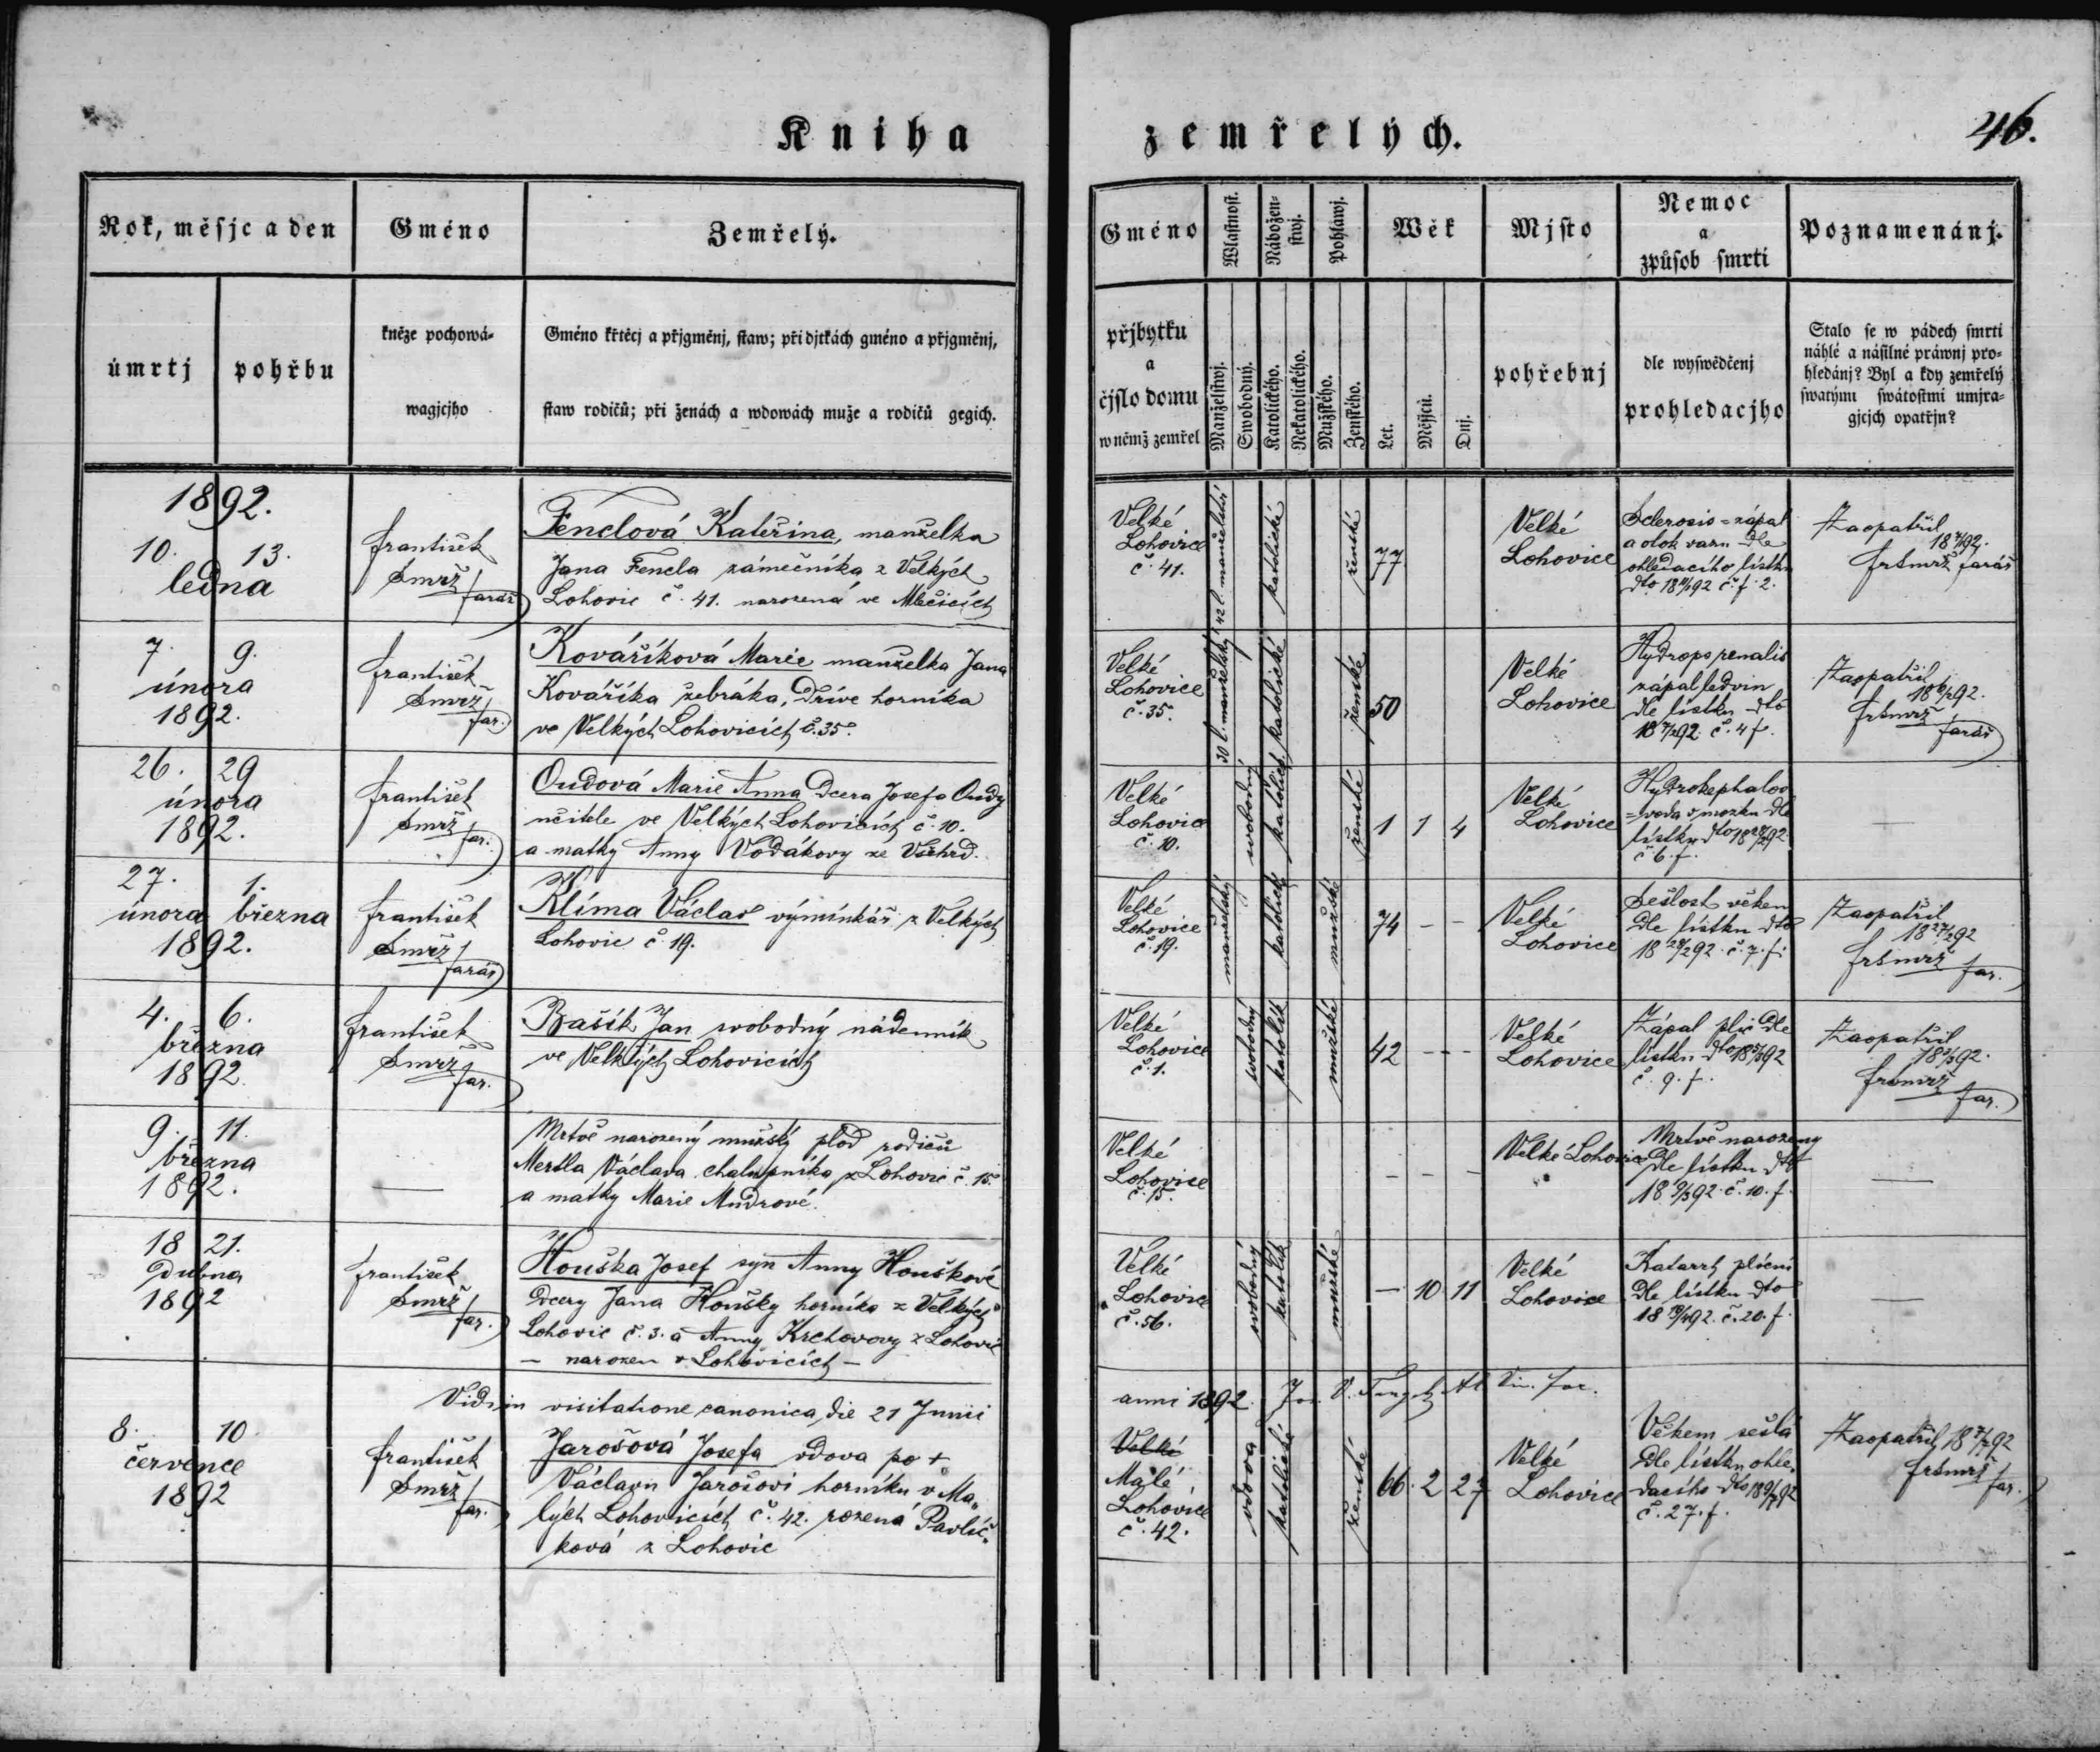 Kniha zemřelých.
46.
Rok, měsjc a den
Gméno
Zemřelý.
úmrtj
pohřbu
kněze pochowá-
wagjcjho
Gméno křtěcj a přjgměnj, staw; při djtkách gméno a přjgměnj,
staw rodičů; při ženách a wdowách muže a rodičů gegich.
Gméno
přjbytku
a
čjslo domu
w němž zemřel
Wlastnost.
Manželstwj.
Swobodný.
Nábožen-
stwj.
Katolického.
Nekatolického.
Pohlawj.
Mužského.
Ženského.
Wěk
Let.
Měsjců.
Dnj.
Mjsto
pohřebnj
Nemoc
a
způsob smrti
dle wyswědčenj
prohledacjho
Poznamenánj.
Stalo se w pádech smrti
náhlé a násilné práwnj pro-
hledánj? Byl a kdy zemřelý
swatými swátostmi umjra-
gjcjch opatřjn?
1892.
10. 13.
ledna
František
Smrž
farář
Fenclová Kateřina, manželka
Jana Fencla zámečníka z Velkých
Lohovic č. 41. narozená ve Mlečicích
Velké
Lohovice
č. 41.
42 l. manželství
katolické
ženské
77
Velké
Lohovice
Sclerosis = zápal
a otok dle
ohledacího lístku
dto 18 11/1 92 č. f. 2.
Zaopatřil
18 7/1 92.
fr Smrž farář
7. 9.
února
1892.
František
Smrž
far.
Kováříková Marie manželka Jana
Kováříka žebráka, dříve horníka
ve Velkých Lohovicích č. 35.
Velké
Lohovice
č. 35.
30 l. manželský
katolické
ženské
50
Velké
Lohovice
Hydrops renalis
zápal ledvin
dle lístku dto
18 7/2 92. č. 4 f.
Zaopatřil
18 6/2 92.
fr Smrž
farář
26. 29
února
1892.
František
Smrž
far.
Oudová Marie Anna dcera Josefa Oudy
učitele ve Velkých Lohovicích č. 10.
a matky Anny Vodákovy ze Všehrd.
Velké
Lohovice
č. 10.
svobodný
katolické
ženské
1 1 4
Velké
Lohovice
Hydrokephalos
= voda v mozku dle
lístku dto 18 27/2 92
č. 6. f.
—
27. 1.
února března
1892.
František
Smrž
farář
Klíma Václav výminkář z Velkých
Lohovic č 19.
Velké
Lohovice
č. 19.
manželský
katolické
mužské
74 - -
Velké
Lohovice
Sešlost věkem
dle lístku dto
18 28/2 92. č. 7. f.
Zaopatřil
18 27/2 92
fr Smrž
far.
4. 6.
března
1892.
František
Smrž
far.
Bašík Jan svobodný nádenník
ve Velkých Lohovicích
Velké
Lohovice
č. 1.
svobodný
katolík
mužské
42 - -
Velké
Lohovice
Zápal plic dle
lístku dto 18 5/3 92
č. 9. f.
Zaopatřil
18 3/3 92.
fr Smrž
far.
9. 11.
března
1892.
—
Mrtvě narozený mužský plod rodičů
Mertla Václava chalupníka z Lohovic č. 15.
a matky Marie Mudrové.
Velké
Lohovice
č. 15.
- - -
Velké Lohovice
Mrtvě narozený
dle lístku dto
18 9/3 92. č. 10. f.
—
18 21.
dubna
1892
František
Smrž
far.
Houška Josef syn Anny Houškové
dcery Jana Houšky horníka z Velkých
Lohovic č. 3. a Anny Krchovovy z Lohovic
— narozen v Lohovicích —
Velké
Lohovice
č. 56.
svobodný
katolík
mužské
— 10 11
Velké
Lohovice
Katarrh plicní
dle lístku dto
18 19/4 92. č. 20. f.
—
Vidi in visitatione canonica die 21 Junii
anni 1892.
8. 10.
července
1892
František
Smrž
far.
Jarošová Josefa vdova po +
Václavu Jarošovi horníku v Ma-
lých Lohovicích č. 42. rozená Pavlíč-
ková z Lohovic
Velké
Malé
Lohovice
č. 42.
vdova
katolické
ženské
66. 2 27
Velké
Lohovice
Věkem sešlá
dle lístku ohle-
dacího dto 18 9/7 92
č. 27. f.
Zaopatřil 18 7/7 92
fr Smrž
far.